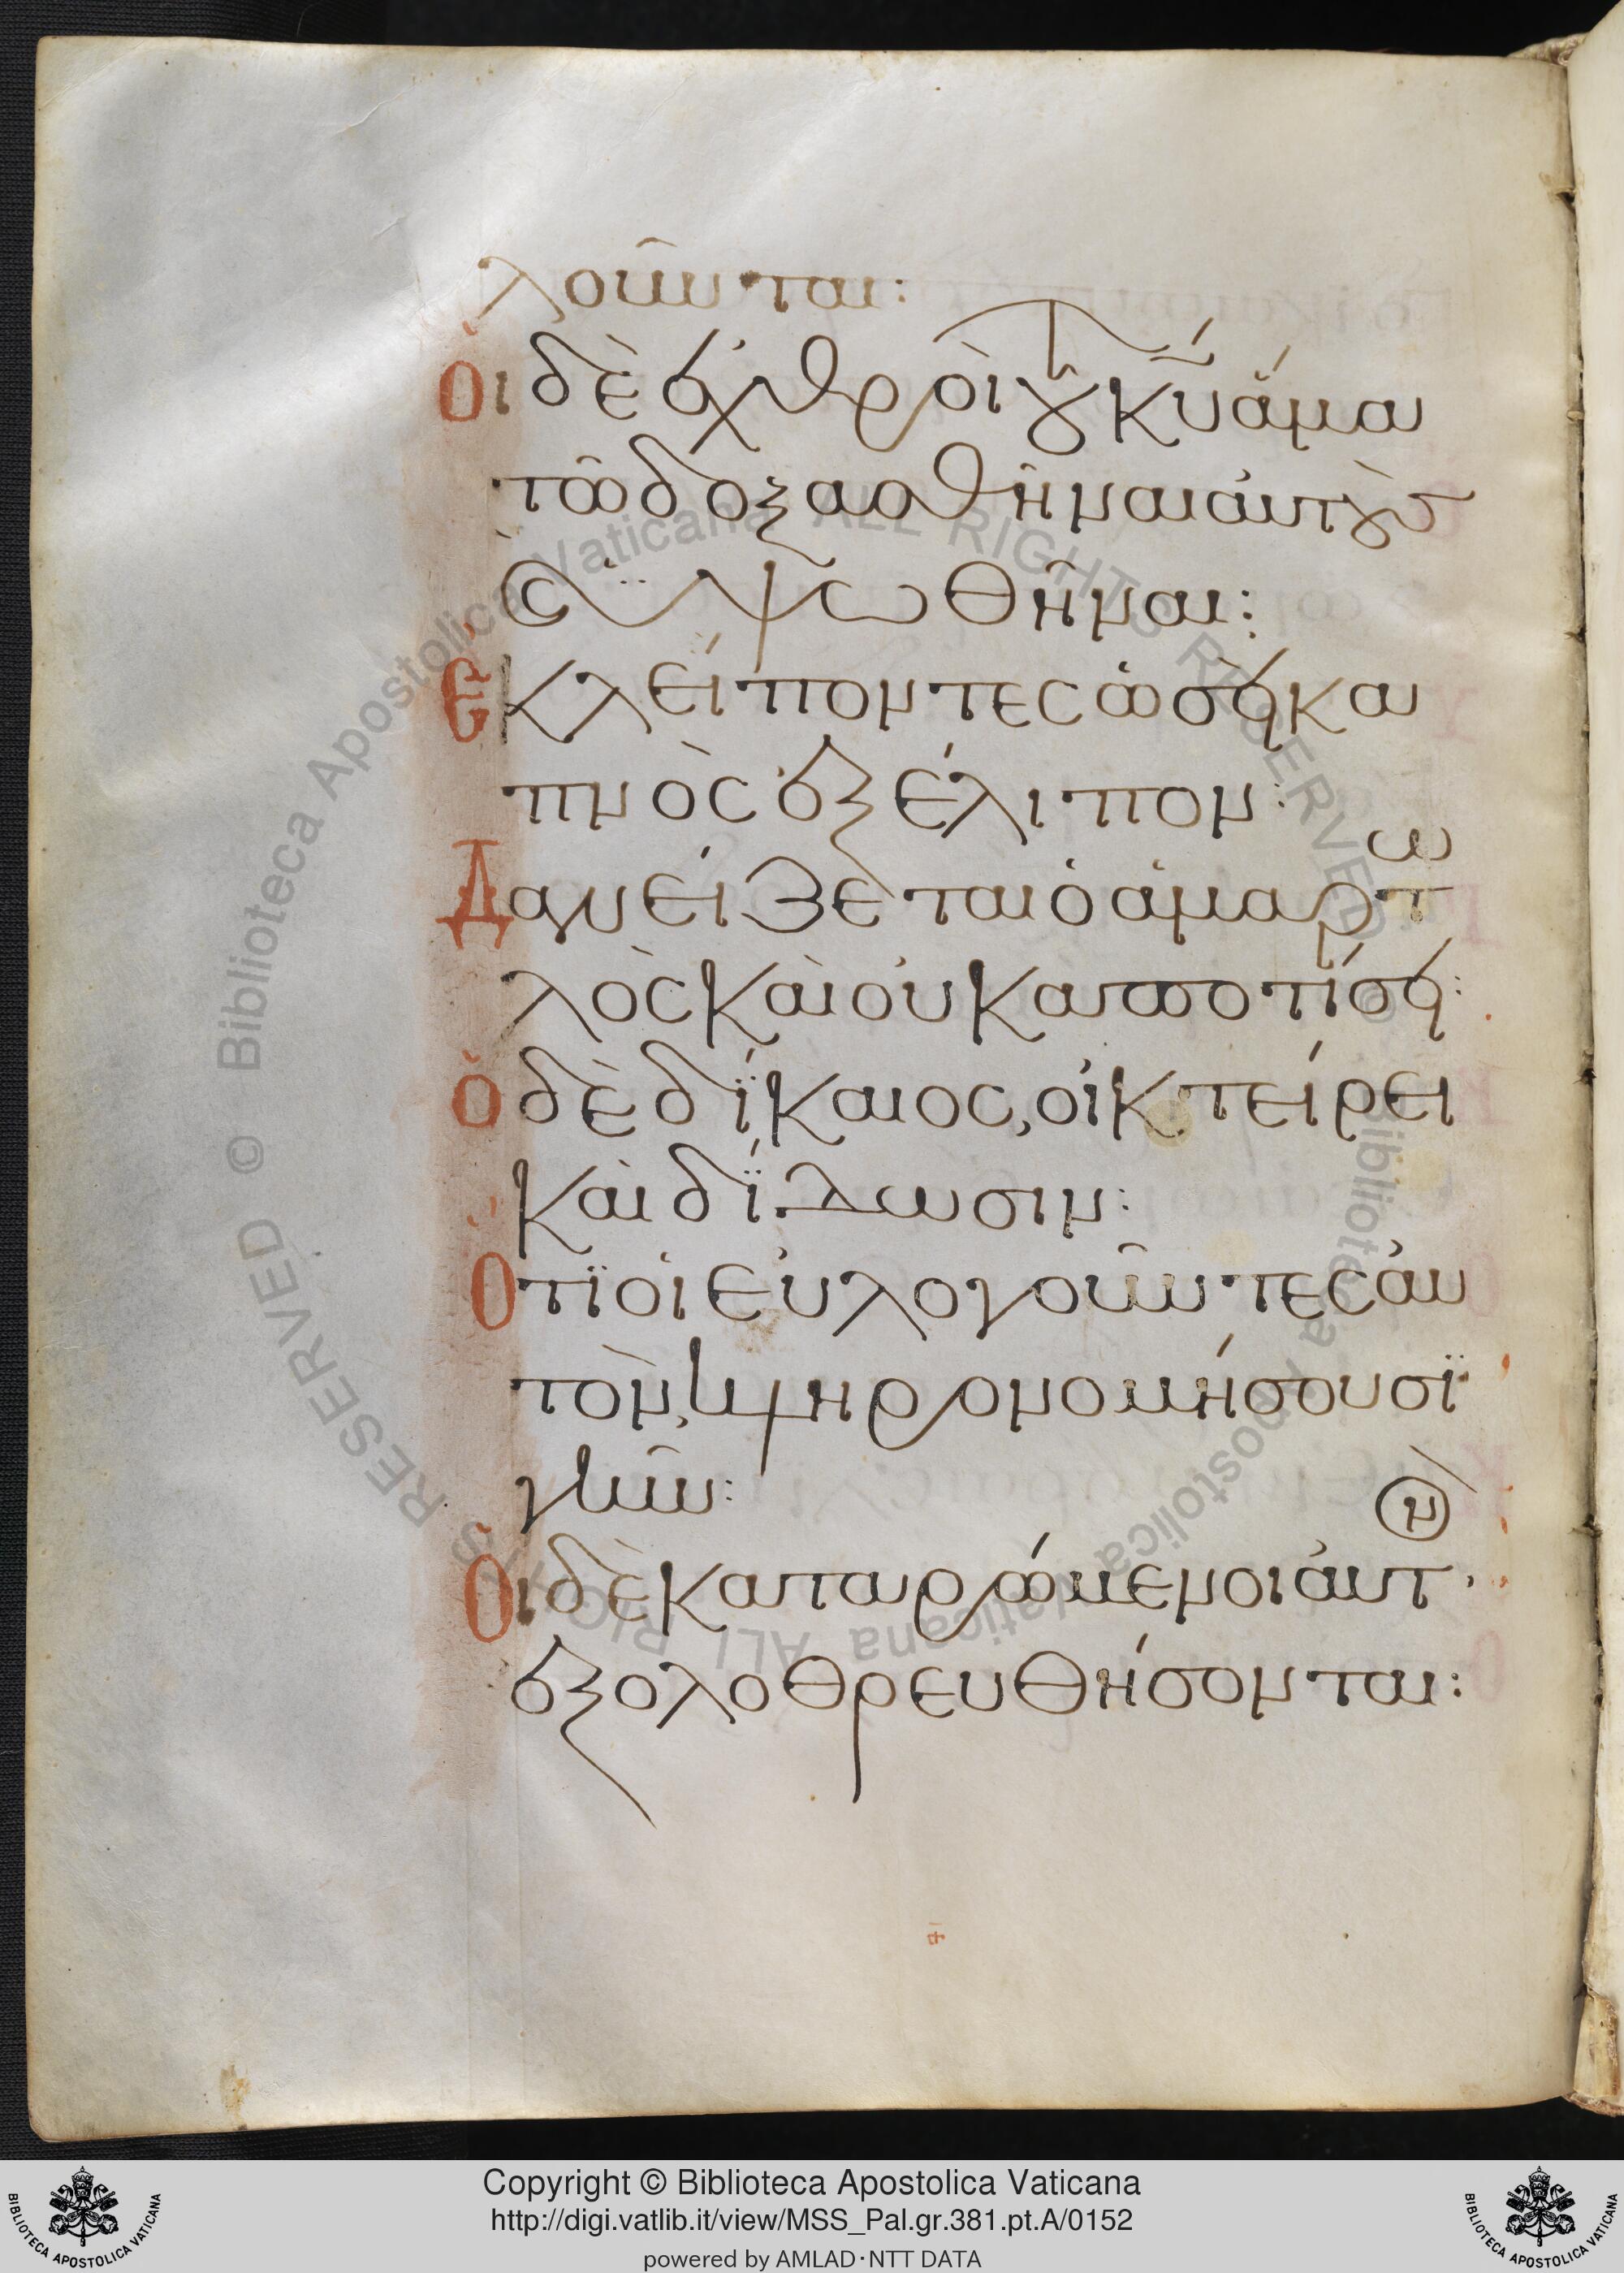 λοῦνται:
Οἱ δὲ ἐχθροὶ τοῦ κ̅υ̅ ἅμα
τῶ δοξασθῆναι αὐτοὺσ
καὶ ὑψωθῆναι:
Ἐκλείποντες ὡσεὶ κα
πνὸς ἐξέλιπον:
Δανείζεται ὁ ἁμαρτω
λὸς καὶ οὐκ ἀποτίσει:
ὁ δὲ δίκαιος, οἰκτείρει
καὶ δίδωσιν:
Ὅτι οἱ εὐλογοῦντες αὐ
τὸν, κληρονομήσουσι
γῆν:
Οἱ δὲ καταρώμενοι αὐτὸν
ἐξολοθρευθήσονται:
Copyright © Biblioteca Apostolica Vaticana
http://digi.vatlib.it/view/MSS_Pal.gr.381.pt.A/0152
powered by AMLAD·NTT DATA
BIBLIOTECA APOSTOLICA VATICANA
BIBLIOTECA APOSTOLICA VATICANA
© Biblioteca Apostolica Vaticana ALL RIGHTS RESERVED
© Biblioteca Apostolica Vaticana ALL RIGHTS RESERVED